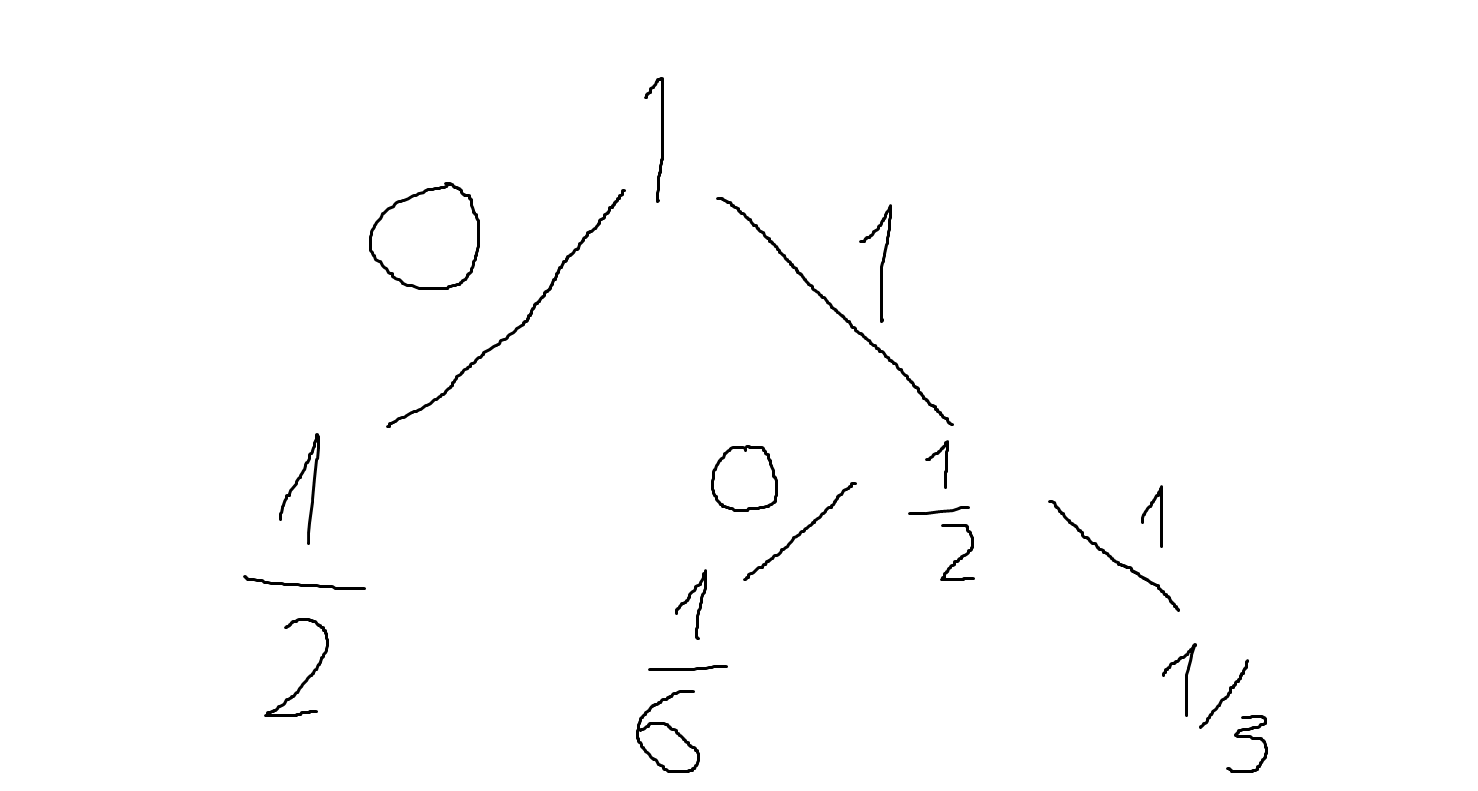 1
0 1
1/2 0 1/2 1
1/6 1/3